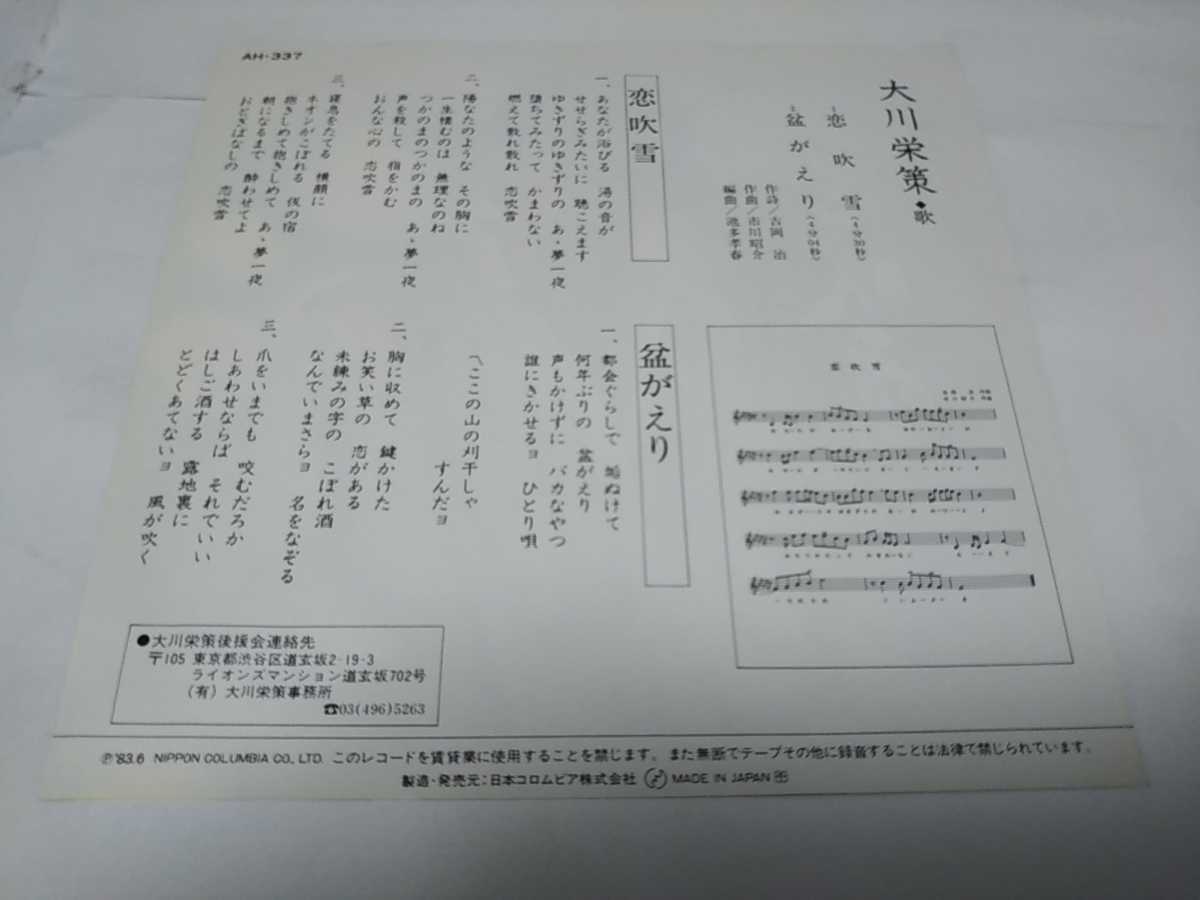 AH-337
大川栄策◆歌
恋吹雪(4分30秒)
盆がえり(4分04秒)
作詩/吉岡 治
作曲/市川昭介
編曲/池多孝春
恋吹雪
一、あなたが浴びる 湯の音が
せせらぎみたいに 聴こえます
ゆきずりのゆきずりの あゝ夢一夜
堕ちてみたって かまわない
燃えて散れ散れ 恋吹雪
二、陽なたのような その胸に
一生棲むのは 無理なのね
つかのまのつかのまの あゝ夢一夜
声を殺して 指をかむ
おんな心の 恋吹雪
三、寝息をたてる 横顔に
ネオンがこぼれる 仮の宿
抱きしめて抱きしめて あゝ夢一夜
朝になるまで 酔わせてよ
おとぎばなしの 恋吹雪
盆がえり
一、都会ぐらしで 垢ぬけて
何年ぶりの 盆がえり
声もかけずに バカなやつ
誰にきかせるョ ひとり唄
〽ここの山の刈干しゃ
すんだョ
二、胸に収めて 鍵かけた
お笑い草の 恋がある
未練みの字の こぼれ酒
なんでいまさらョ 名をなぞる
三、爪をいまでも 咬むだろか
しあわせならば それでいい
はしご酒する 露地裏に
とどくあてないョ 風が吹く
恋吹雪
●大川栄策後援会連絡先
〒105 東京都渋谷区道玄坂2-19-3
ライオンズマンション道玄坂702号
(有)大川栄策事務所
☎03(496)5263
Ⓟ'83.6 NIPPON COLUMBIA CO., LTD. このレコードを賃貸業に使用することを禁じます。また無断でテープその他に録音することは法律で禁じられています。
製造・発売元:日本コロムビア株式会社 MADE IN JAPAN